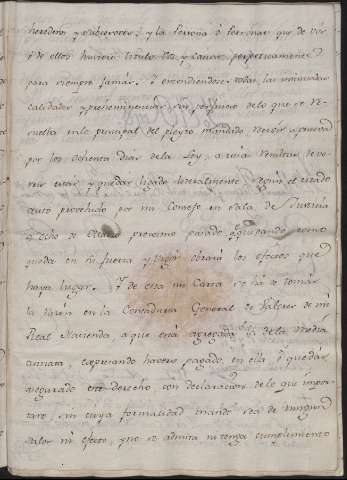 herederos, y subcesores; y la Persona ó Personas que de vos
ó de ellos huviere titulo, voz y causa, perpetuamente
para siempre jamás. Y entendiendose todas las mismas
calidades y preheminencias, sin perjuicio de lo que se re-
suelva en lo principal del pleyto mandado recivir a prueva
por los ochenta dias de la Ley, a cuias resultas de-
veis estár y quedar ligado literalmente según el citado
auto provehido por mi Consejo en Sala de Justicia
a ocho de Octubre proximo pasado, quedando como
queda en su fuerza y vigor obrará los efectos que
haya lugar. Y de esta mi Carta se há de tomár
la razon en la Contaduria General de Valores de mi
Real Hacienda, a que está agregada la de la Media
annata, expresando haverse pagado, en ella, ó quedár
asegurado este derecho con declaracion de lo que impor-
tare, sin cuya formalidad mando sea de ningun
valor ni efecto, y no se admita ni tenga cumplimiento